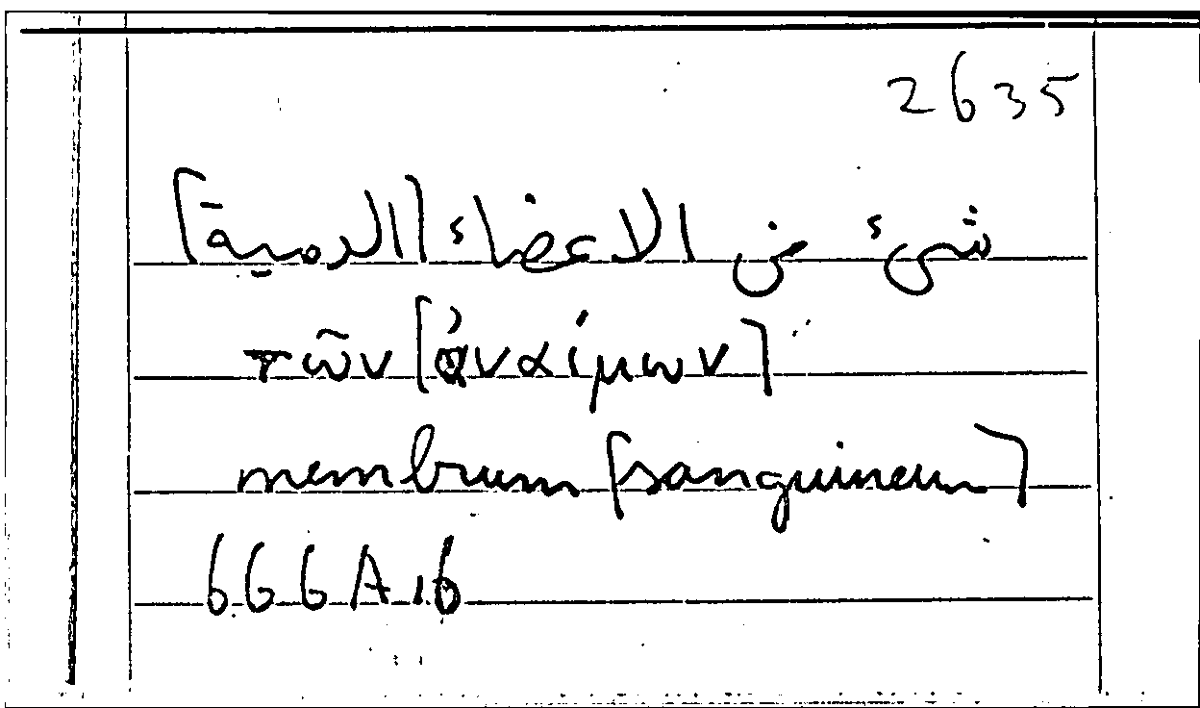 2635
شىء من الاعضاء [الدمية]
τῶν [ἀναίμων]
membrum [sanguineum]
666A16